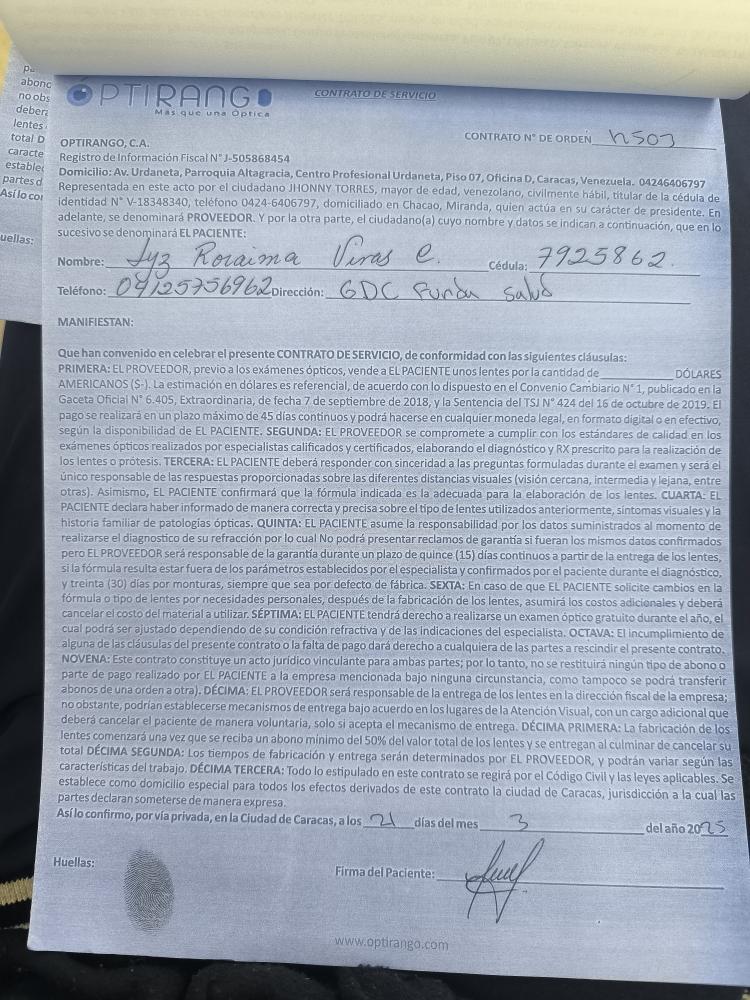 abono
no obs
deberá
lentes
total D
caracte
estable
partes d
Así lo co
uellas:
OPTIRANGO
Más que una Óptica
CONTRATO DE SERVICIO
CONTRATO N° DE ORDEN
OPTIRANGO, C.A.
Registro de Información Fiscal N° J-505868454
Domicilio: Av. Urdaneta, Parroquia Altagracia, Centro Profesional Urdaneta, Piso 07, Oficina D, Caracas, Venezuela. 04246406797
Representada en este acto por el ciudadano JHONNY TORRES, mayor de edad, venezolano, civilmente hábil, titular de la cédula de
identidad N° V-18348340, teléfono 0424-6406797, domiciliado en Chacao, Miranda, quien actúa en su carácter de presidente. En
adelante, se denominará PROVEEDOR. Y por la otra parte, el ciudadano(a) cuyo nombre y datos se indican a continuación, que en lo
sucesivo se denominará EL PACIENTE:
Nombre: Roraima C. Cédula: 7925862.
Teléfono: 04125756962 Dirección: GDC Funda Salud
MANIFIESTAN:
Que han convenido en celebrar el presente CONTRATO DE SERVICIO, de conformidad con las siguientes cláusulas:
PRIMERA: EL PROVEEDOR, previo a los exámenes ópticos, vende a EL PACIENTE unos lentes por la cantidad de ________ DÓLARES
AMERICANOS ($-). La estimación en dólares es referencial, de acuerdo con lo dispuesto en el Convenio Cambiario N° 1, publicado en la
Gaceta Oficial N° 6.405, Extraordinaria, de fecha 7 de septiembre de 2018, y la Sentencia del TSJ N° 424 del 16 de octubre de 2019. El
pago se realizará en un plazo máximo de 45 días continuos y podrá hacerse en cualquier moneda legal, en formato digital o en efectivo,
según la disponibilidad de EL PACIENTE. SEGUNDA: EL PROVEEDOR se compromete a cumplir con los estándares de calidad en los
exámenes ópticos realizados por especialistas calificados y certificados, elaborando el diagnóstico y RX prescrito para la realización de
los lentes o prótesis. TERCERA: EL PACIENTE deberá responder con sinceridad a las preguntas formuladas durante el examen y será el
único responsable de las respuestas proporcionadas sobre las diferentes distancias visuales (visión cercana, intermedia y lejana, entre
otras). Asimismo, EL PACIENTE confirmará que la fórmula indicada es la adecuada para la elaboración de los lentes. CUARTA: EL
PACIENTE declara haber informado de manera correcta y precisa sobre el tipo de lentes utilizados anteriormente, síntomas visuales y la
historia familiar de patologías ópticas. QUINTA: EL PACIENTE asume la responsabilidad por los datos suministrados al momento de
realizarse el diagnostico de su refracción por lo cual No podrá presentar reclamos de garantía si fueran los mismos datos confirmados
pero EL PROVEEDOR será responsable de la garantía durante un plazo de quince (15) días continuos a partir de la entrega de los lentes,
si la fórmula resulta estar fuera de los parámetros establecidos por el especialista y confirmados por el paciente durante el diagnóstico,
y treinta (30) días por monturas, siempre que sea por defecto de fábrica. SEXTA: En caso de que EL PACIENTE solicite cambios en la
fórmula o tipo de lentes por necesidades personales, después de la fabricación de los lentes, asumirá los costos adicionales y deberá
cancelar el costo del material a utilizar. SÉPTIMA: EL PACIENTE tendrá derecho a realizarse un examen óptico gratuito durante el año, el
cual podrá ser ajustado dependiendo de su condición refractiva y de las indicaciones del especialista. OCTAVA: El incumplimiento de
alguna de las cláusulas del presente contrato o la falta de pago dará derecho a cualquiera de las partes a rescindir el presente contrato.
NOVENA: Este contrato constituye un acto jurídico vinculante para ambas partes; por lo tanto, no se restituirá ningún tipo de abono o
parte de pago realizado por EL PACIENTE a la empresa mencionada bajo ninguna circunstancia, como tampoco se podrá transferir
abonos de una orden a otra). DÉCIMA: EL PROVEEDOR será responsable de la entrega de los lentes en la dirección fiscal de la empresa;
no obstante, podrían establecerse mecanismos de entrega bajo acuerdo en los lugares de la Atención Visual, con un cargo adicional que
deberá cancelar el paciente de manera voluntaria, solo si acepta el mecanismo de entrega. DÉCIMA PRIMERA: La fabricación de los
lentes comenzará una vez que se reciba un abono mínimo del 50% del valor total de los lentes y se entregan al culminar de cancelar su
total DÉCIMA SEGUNDA: Los tiempos de fabricación y entrega serán determinados por EL PROVEEDOR, y podrán variar según las
características del trabajo. DÉCIMA TERCERA: Todo lo estipulado en este contrato se regirá por el Código Civil y las leyes aplicables. Se
establece como domicilio especial para todos los efectos derivados de este contrato la ciudad de Caracas, jurisdicción a la cual las
partes declaran someterse de manera expresa.
Así lo confirmo, por vía privada, en la Ciudad de Caracas, a los 21 días del mes 3 del año 2025
Huellas:
Firma del Paciente:
www.optirango.com